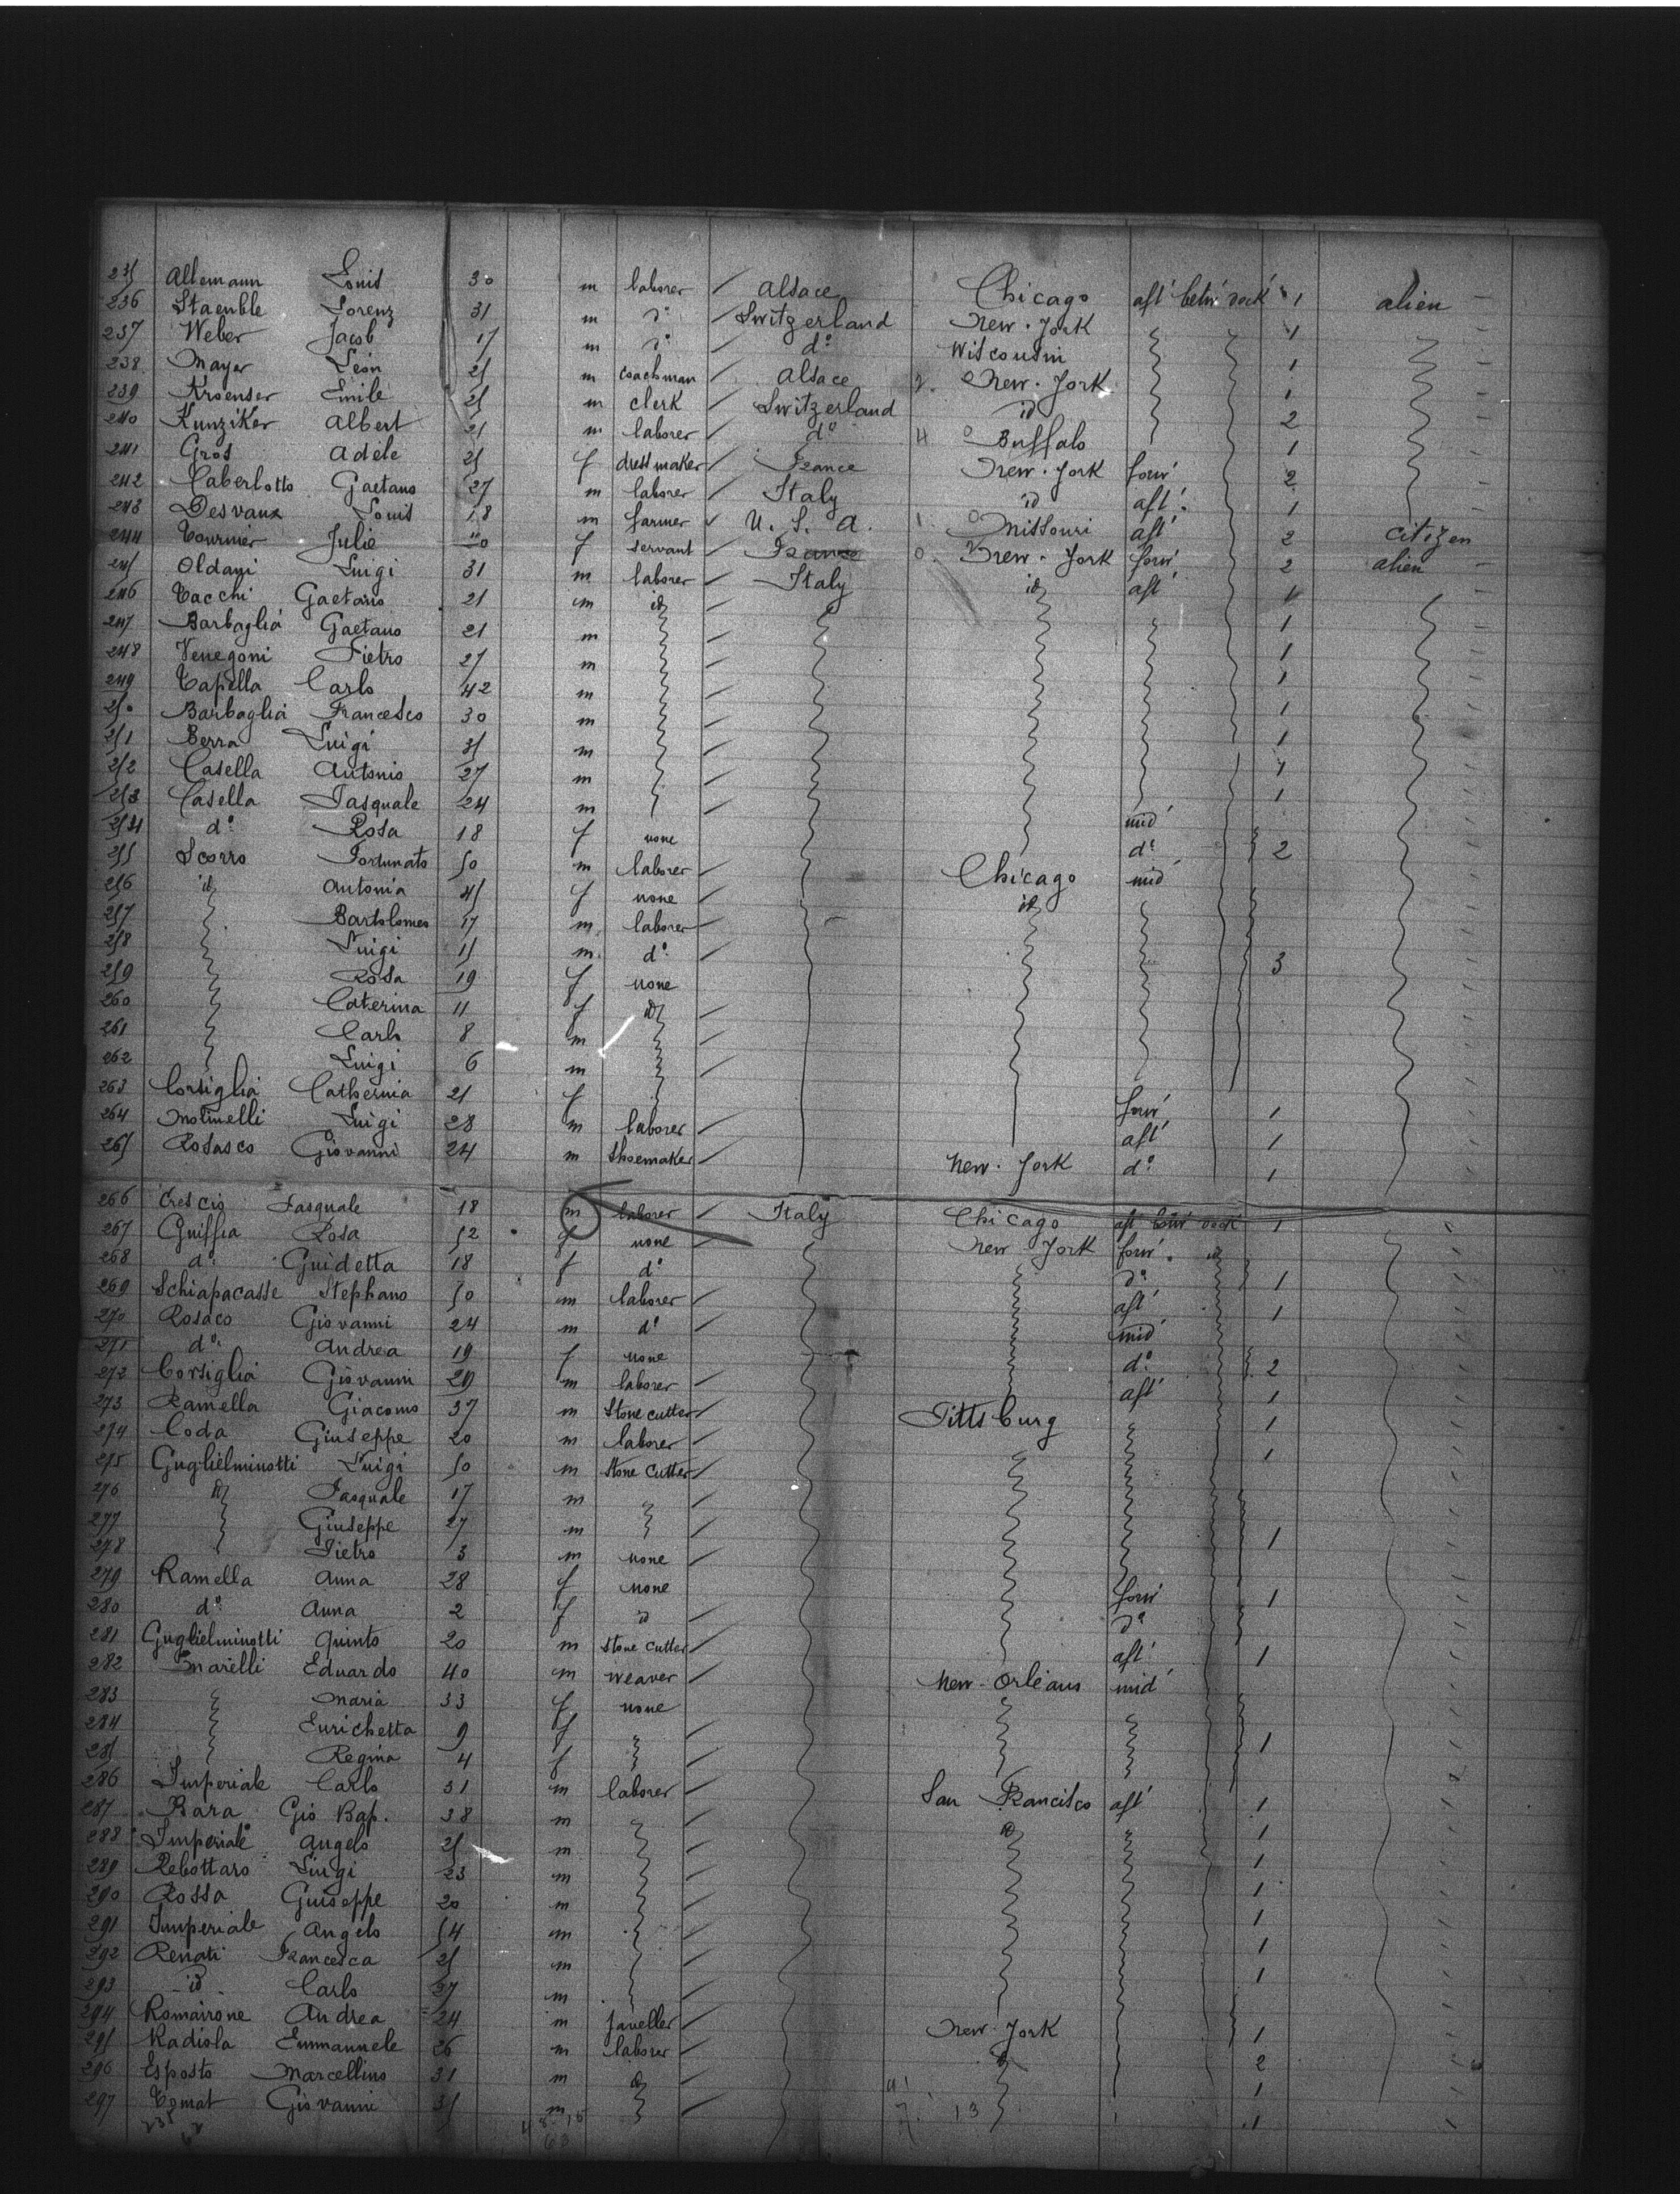 235 Allemann Louis 30 m laborer Alsace Chicago aft betw deck 1 alien
236 Staenble Lorenz 31 m do Switzerland New-York 1
237 Weber Jacob 17 m do do Wisconsin 1
238 Mayer Léon 25 m coachman Alsace New-York 1
239 Kroenser Emile 25 m clerk Switzerland id 2
240 Kunziker Albert 21 m laborer do Buffalo 1
241 Gros Adèle 25 f dressmaker France New-York forw 2
242 Caberlotto Gaetano 27 m laborer Italy id aft 1
243 Desvaux Louis 18 m farmer U. S. A. Missouri aft 2 citizen
244 Tournier Julie f servant France New-York forw 2 alien
245 Oldani Luigi 31 m laborer Italy id aft
246 Tacchi Gaetano 21 m id
247 Barbaglia Gaetano 21 m 1
248 Venegoni Pietro 27 m 1
249 Capella Carlo 42 m 1
250 Barbaglia Francesco 30 m 1
251 Berra Luigi 35 m 1
252 Casella Antonio 27 m 1
253 Casella Pasquale 24 m mid 1
254 do Rosa 18 f none do 2
255 Scorro Fortunato 50 m laborer Chicago mid
256 id Antonia 45 f none id
257 Bartolomeo 17 m laborer
258 Luigi 15 m do 3
259 Rosa 19 f none
260 Caterina 11 f id
261 Carlo 8 m
262 Luigi 6 m
263 Corsiglia Catherina 21 f forw 1
264 Motinelli Luigi 28 m laborer aft 1
265 Rosasco Giovanni 24 m shoemaker New-York do 1
266 Crescio Pasquale 18 m laborer Italy Chicago aft betw deck 1
267 Guiffra Rosa 52 f none New York forw id
268 do Guidetta 18 f do do 1
269 Schiapacasse Stephano 50 m laborer aft 1
270 Rosaco Giovanni 24 m do mid
271 do Andrea 19 f none do 2
272 Corsiglia Giovanni 29 m laborer aft 1
273 Ramella Giacomo 37 m Stone cutter Pittsburg 1
274 Coda Giuseppe 20 m laborer 1
275 Guglielminotti Luigi 50 m Stone cutter
276 id Pasquale 17 m
277 Giuseppe 27 m 1
278 Pietro 3 m none
279 Ramella Anna 28 f none forw 1
280 do Anna 2 f id do
281 Guglielminotti Quinto 20 m Stone cutter aft 1
282 Marelli Eduardo 40 m weaver New-Orleans mid
283 Maria 33 f none
284 Enrichetta 9 f
285 Regina 4 f 1
286 Imperiale Carlo 31 m laborer San Francisco aft 1
287 Bara Gio Bap. 38 m id 1
288 Imperiale Angelo 25 m 1
289 Rebottaro Luigi 23 m 1
290 Rossa Guiseppe 20 m 1
291 Imperiale Angelo 54 m 1
292 Renati Francesca 25 m 1
293 id Carlo 27 m
294 Romairone Andrea 24 m javeller New York 1
295 Radiola Emmanuele 26 m laborer id 2
296 Esposto Marcellino 31 m id 1
297 Comat Giovanni 35 m 1